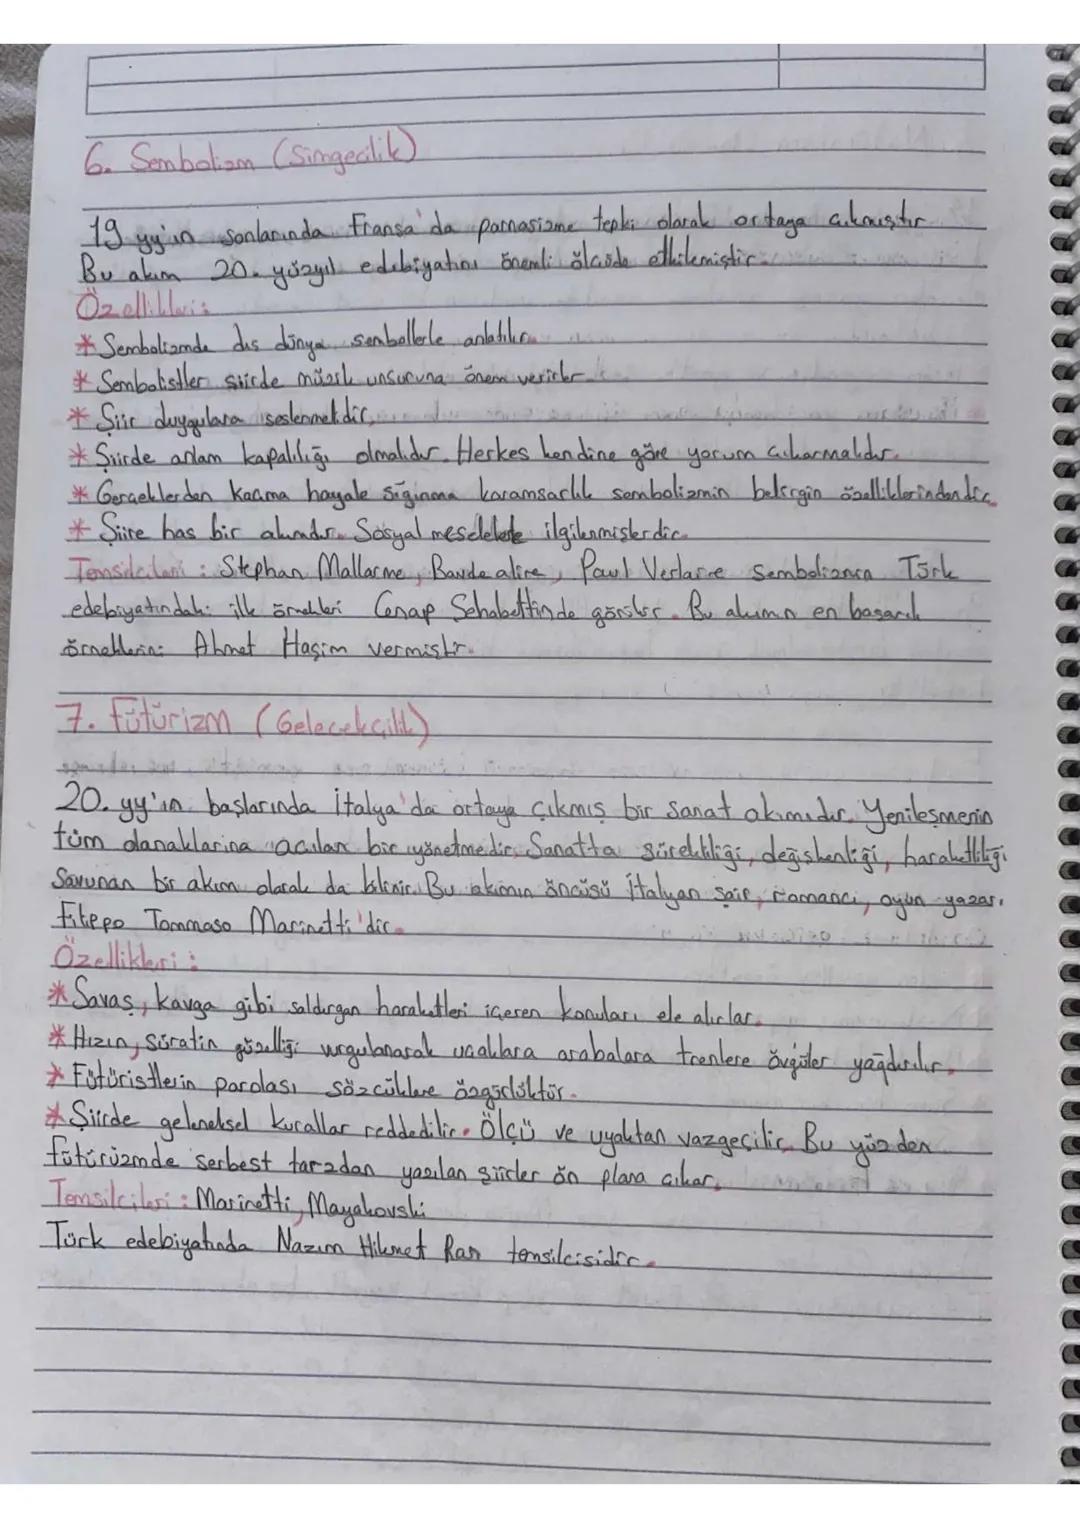 6. Sembolizm (Simgecilik)
19 yy'ın sonlarında Fransa'da parnasizme tepki olarak ortaya çıkmıştır
Bu akım 20. yüzyıl edebiyatını önemli ölçüde etkilemiştir.
Özellikleri:
* Sembolizmde dış dünya sembollerle anlatılır.
* Sembolistler şiirde müzik unsuruna önem verirler.
* Şiir duygulara seslenmelidir.
* Şiirde anlam kapalılığı olmalıdır. Herkes kendine göre yorum çıkarmalıdır.
* Gerçeklerden kaçma hayale sığınma karamsarlık sembolizmin belirgin özelliklerindendir.
* Şiire has bir akımdır. Sosyal meselelerle ilgilenmişlerdir.
Temsilcileri: Stephan Mallarme, Baudealire, Paul Verlaine Sembolizmin Türk
edebiyatındaki ilk örnekleri Cenap Sehabettinde görülür. Bu akımın en başarılı
örneklerini Ahmet Haşim vermiştir.
7. Fütürizm (Gelecekçilik)
20. yy'ın başlarında İtalya'da ortaya çıkmış bir sanat akımıdır. Yenileşmenin
tüm olanaklarına açılan bir yönetmedir. Sanatta sürekliliği, değişkenliği, haraketliliği
Savunan bir akım olarak da bilinir. Bu akımın öncüsü İtalyan şair, romancı, oyun yazarı
Filippo Tommaso Marinetti'dir.
Özellikleri:
* Savaş, kavga gibi saldırgan haraketleri içeren konuları ele alırlar.
* Hızın, süratin güzelliği vurgulanarak uçaklara arabalara trenlere övgüler yağdırılır.
* Fütüristlerin parolası sözcüklere özgürlüktür.
* Şiirde geleneksel kurallar reddedilir. Ölçü ve uyaktan vazgeçilir. Bu yüzden
fütürüzmde serbest tarzdan yazılan şiirler ön plana çıkar.
Temsilcileri: Marinetti, Mayakovski
Türk edebiyatında Nazım Hikmet Ran temsilcisidir.